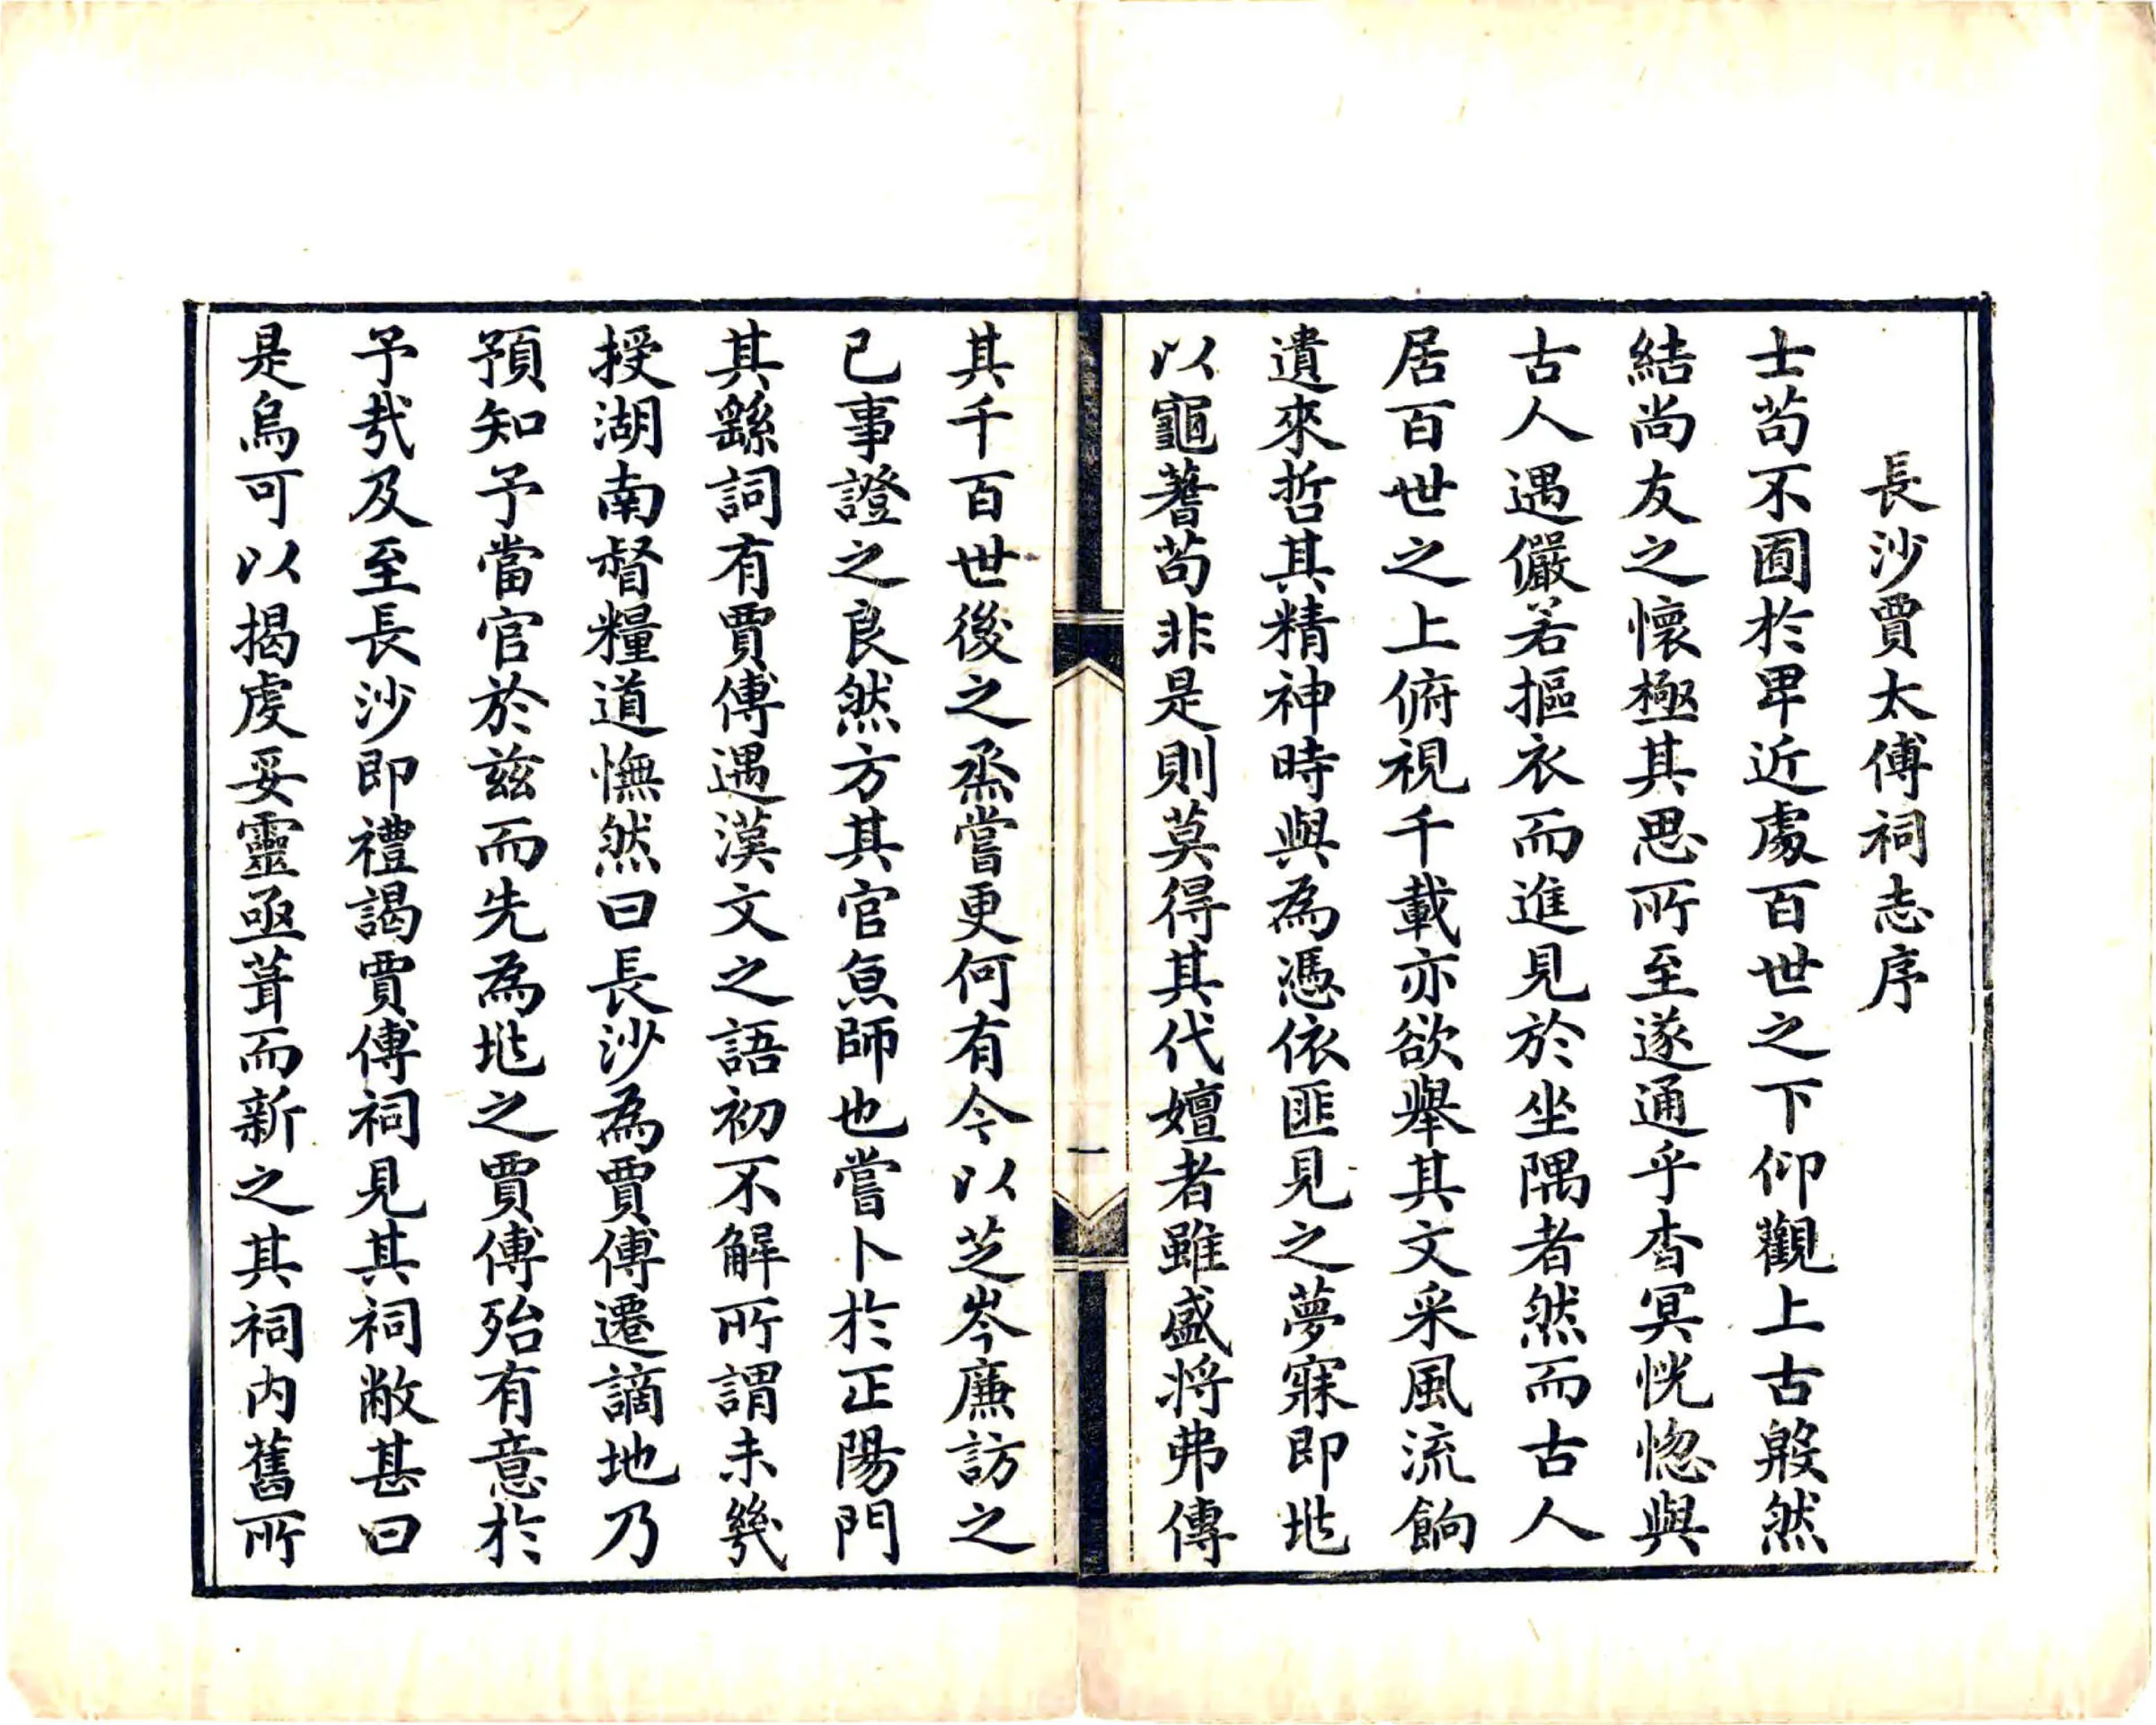 長沙賈太傅祠志序
士苟不囿於卑近處百世之下仰觀上古毅然
結尚友之懷極其思所至遂通乎杳冥恍惚與
古人遇儼若摳衣而進見於坐隅者然而古人
居百世之上俯視千載亦欲舉其文采風流餉
遺來哲其精神時與為憑依匪見之夢寐即兆
以龜蓍苟非是則莫得其代嬗者雖盛將弗傳
其千百世後之烝嘗更何有今以芝岑廉訪之
已事證之良然方其官京師也嘗卜於正陽門
其繇詞有賈傅遇漢文之語初不解所謂未幾
授湖南督糧道憮然曰長沙為賈傅遷謫地乃
預知予當官於兹而先為兆之賈傅殆有意於
予哉及至長沙即禮謁賈傅祠見其祠敝甚曰
是烏可以揭虔妥靈亟葺而新之其祠内舊所
一